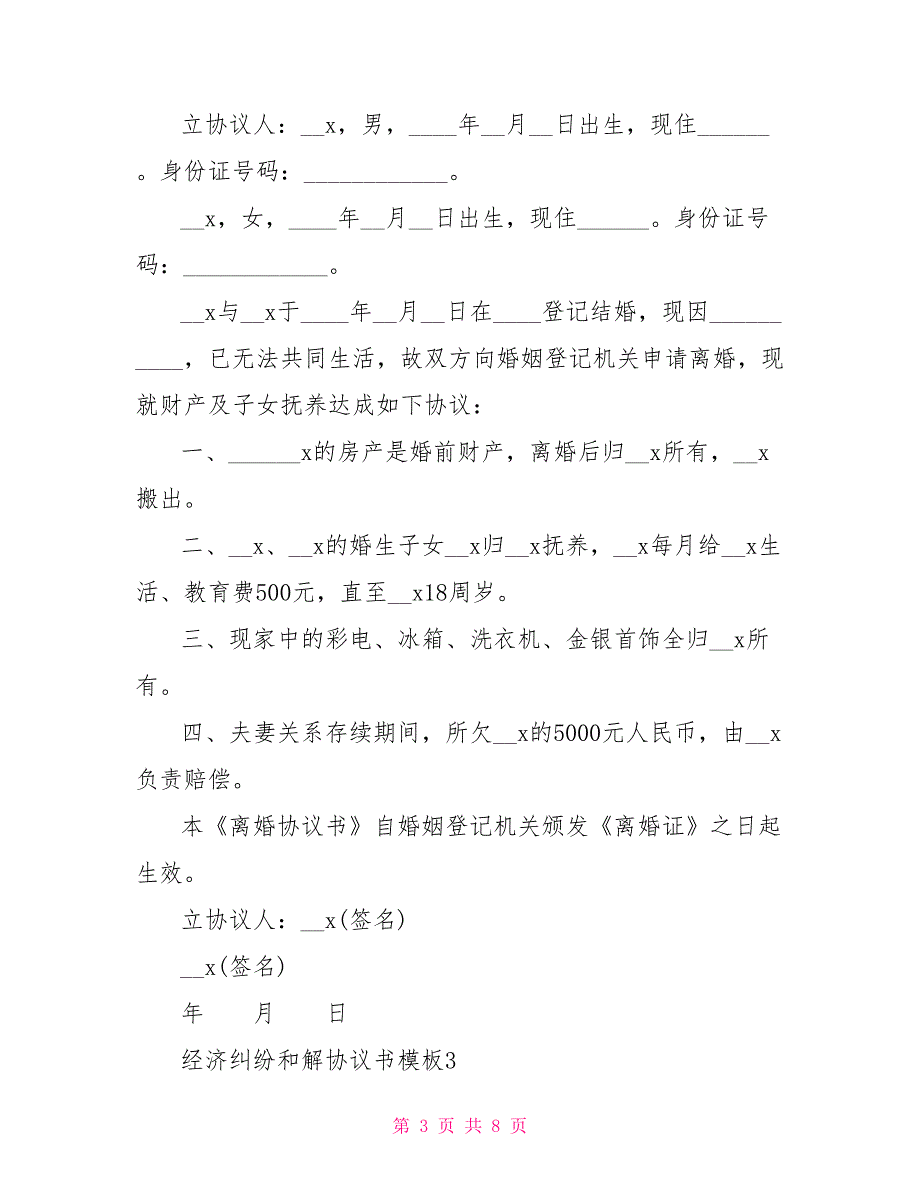 立协议人：__x，男，____年__月__日出生，现住______
。身份证号码：____________。
__x，女，____年__月__日出生，现住______。身份证号
码：____________。
__x与__x于____年__月__日在____登记结婚，现因______
____，已无法共同生活，故双方向婚姻登记机关申请离婚，现
就财产及子女抚养达成如下协议：
一、______x的房产是婚前财产，离婚后归__x所有，__x
搬出。
二、__x、__x的婚生子女__x归__x抚养，__x每月给__x生
活、教育费500元，直至__x18周岁。
三、现家中的彩电、冰箱、洗衣机、金银首饰全归__x所
有。
四、夫妻关系存续期间，所欠__x的5000元人民币，由__x
负责赔偿。
本《离婚协议书》自婚姻登记机关颁发《离婚证》之日起
生效。
立协议人：__x(签名)
__x(签名)
年 月 日
经济纠纷和解协议书模板3
第 3 页 共 8 页